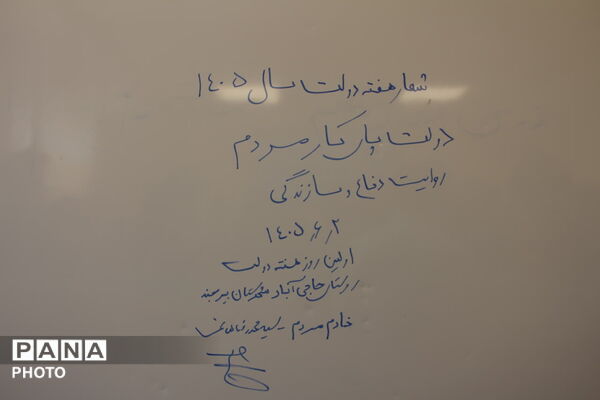 شعار هفته دولت سال ۱۴۰۵
دولت پای کار مردم
روایت دفاع و سازندگی
۱۴۰۵٫۶٫۲
اولین روز هفته دولت
روستای حاجی آباد شهرستان بیرجند
خادم مردم سید محمدرضا
PANA
PHOTO